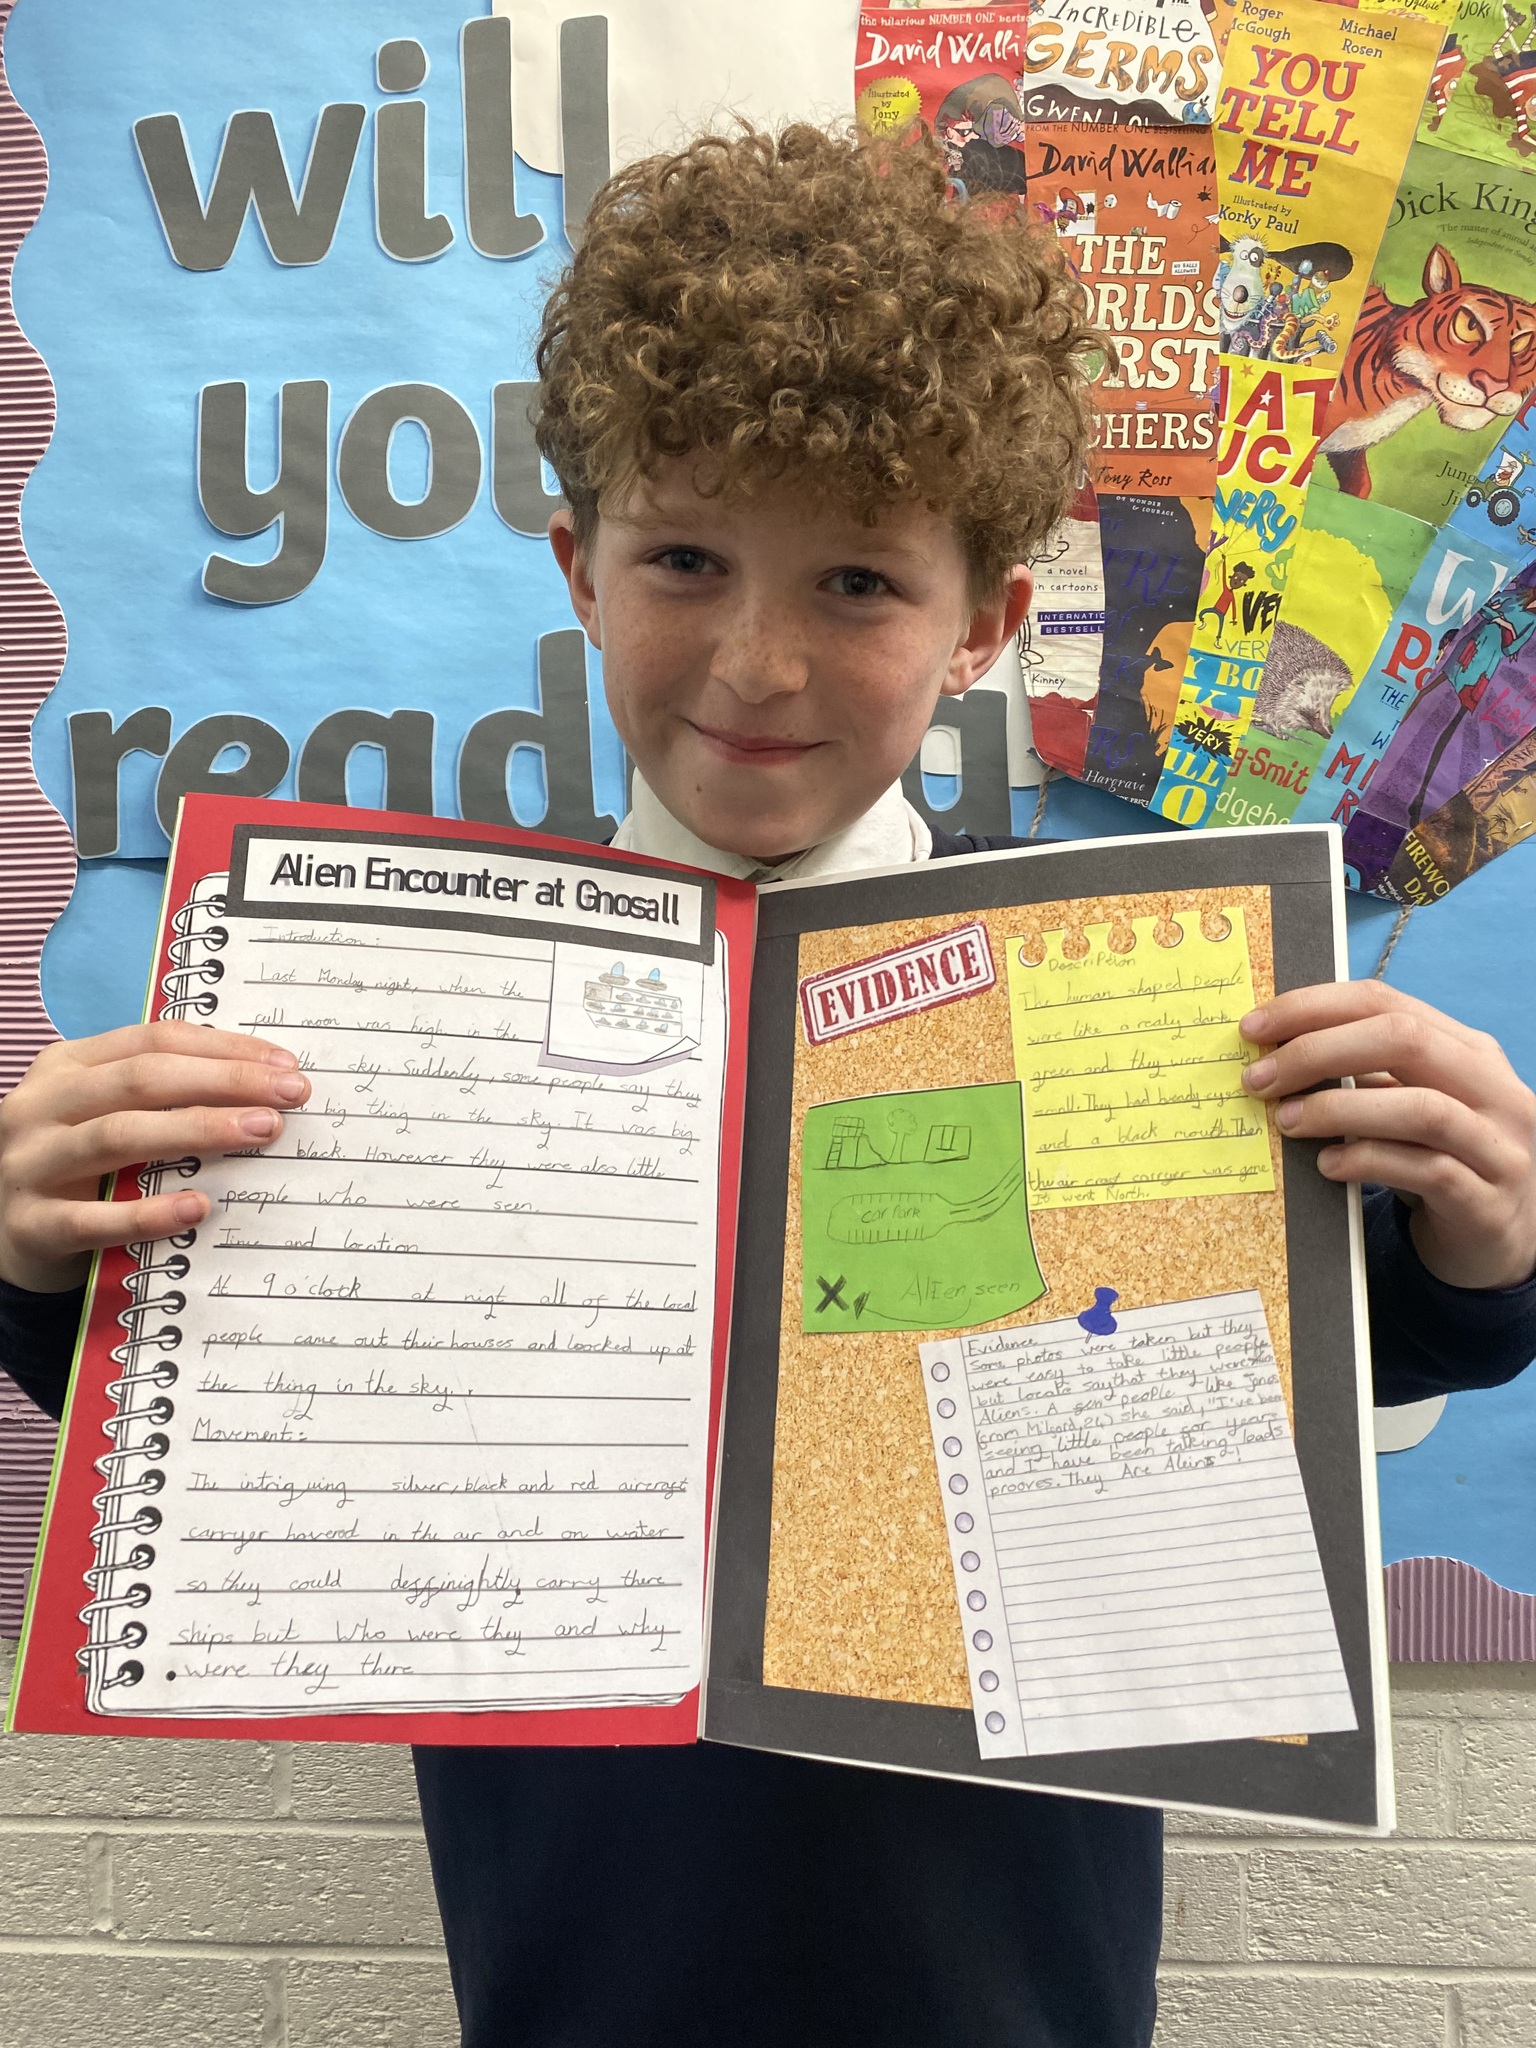 will
you
read
the hilarious NUMBER ONE bests
David Walli
Illustrated
by
Tony
INCREDIBLE
GERMS
GWEN LOW
FROM THE NUMBER ONE BESTSELLING
David Walliam
THE
ORLD'S
ORST
CHERS
Tony Ross
Roger
McGough
Michael
Rosen
YOU
TELL
ME
Illustrated by
Korky Paul
JOKE
Dick King
The master of animal
Jung
a novel
in cartoons
INTERNATIO
BESTSELL
Kinney
OF WONDER
& COURAGE
Hargrave
VERY
VERY
VERY
g-Smit
dgeho
THE
FIREWO
Alien Encounter at Gnosall
Introduction:
Last Monday night, when the
full moon was high in the
the sky. Suddenly, some people say they
big thing in the sky. It was big
black. However they were also little
people who were seen.
Time and location
At 9 o'clock at nigt all of the local
people came out their houses and loocked up at
the thing in the sky.
Movement:
The intriguing silver, black and red aircraft
carryer hovered in the air and on water
so they could deffinightly carry there
ships but Who were they and why
were they there
EVIDENCE
Description
The human shaped People
were like a realy dark
green and they were realy
small. They had beady eyes
and a black mouth. Then
the air craft carryer was gone
It went North.
car Park
Alien seen
Evidence
Some photos were taken but they
were easy to take little people
but locals say that they were
Aliens. A people like
(from Milford, 24) she said, "I've been
seeing little people for years
and I have been talking loads
prooves. They Are Aleins"!